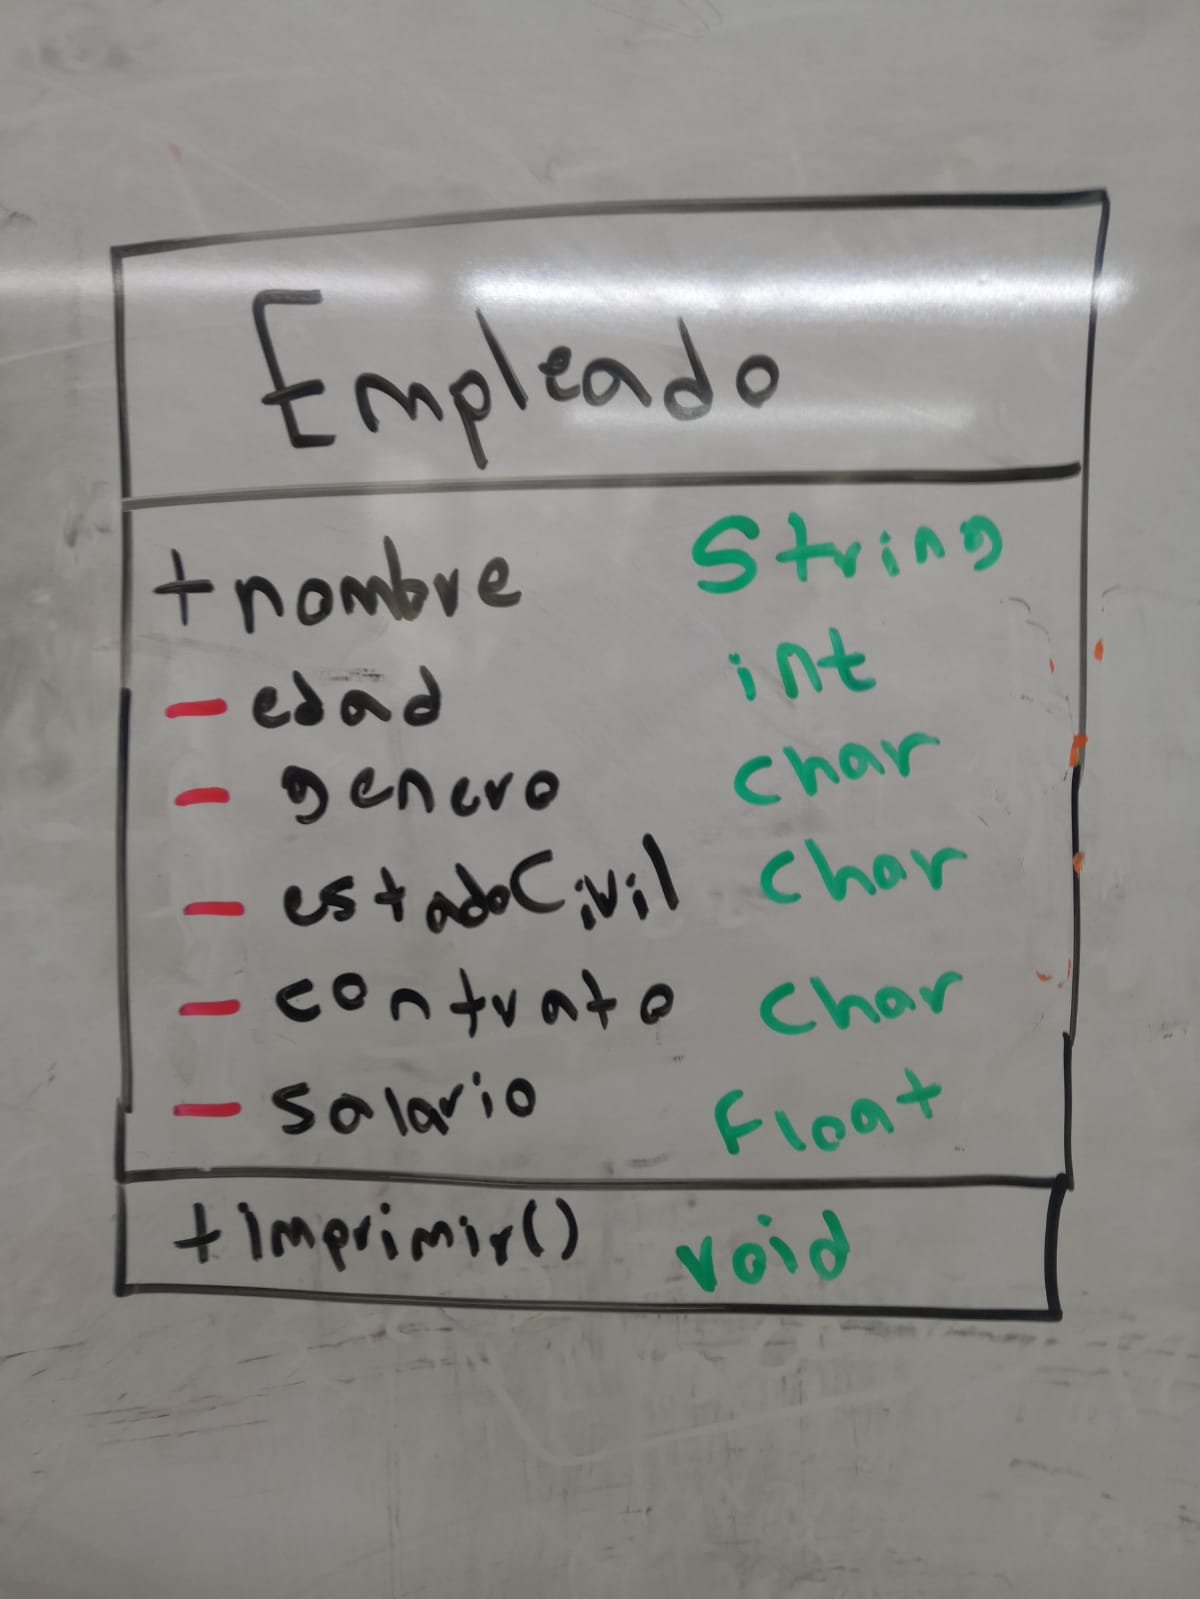 Empleado
+ nombre String
- edad int
- genero char
- estadoCivil char
- contrato char
- salario Float
+ imprimir() void